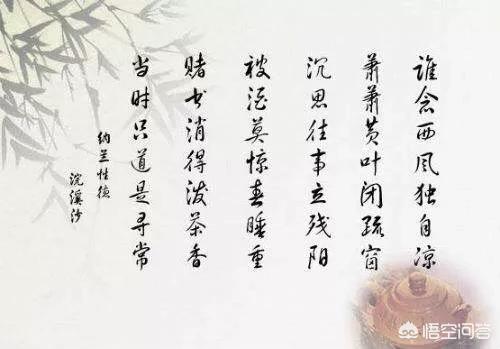 谁念西风独自凉
萧萧黄叶闭疏窗
沉思往事立残阳
被酒莫惊春睡重
赌书消得泼茶香
当时只道是寻常
纳兰性德
浣溪沙
悟空问答